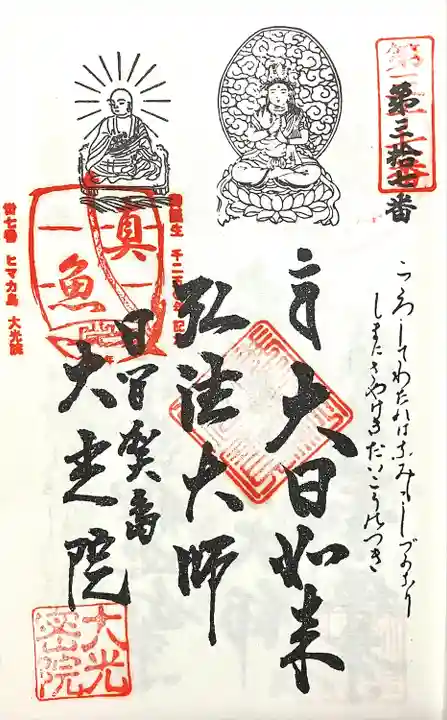 第三拾七番
こゝろしてわたれはなみもしづかなり
しまにさやけきだいこうのつき
大日如来
弘法大師
日間賀島
大光院
真魚
御誕生 千二百五十年記念
卅七番 ヒマカ島 大光院
大光
密山院